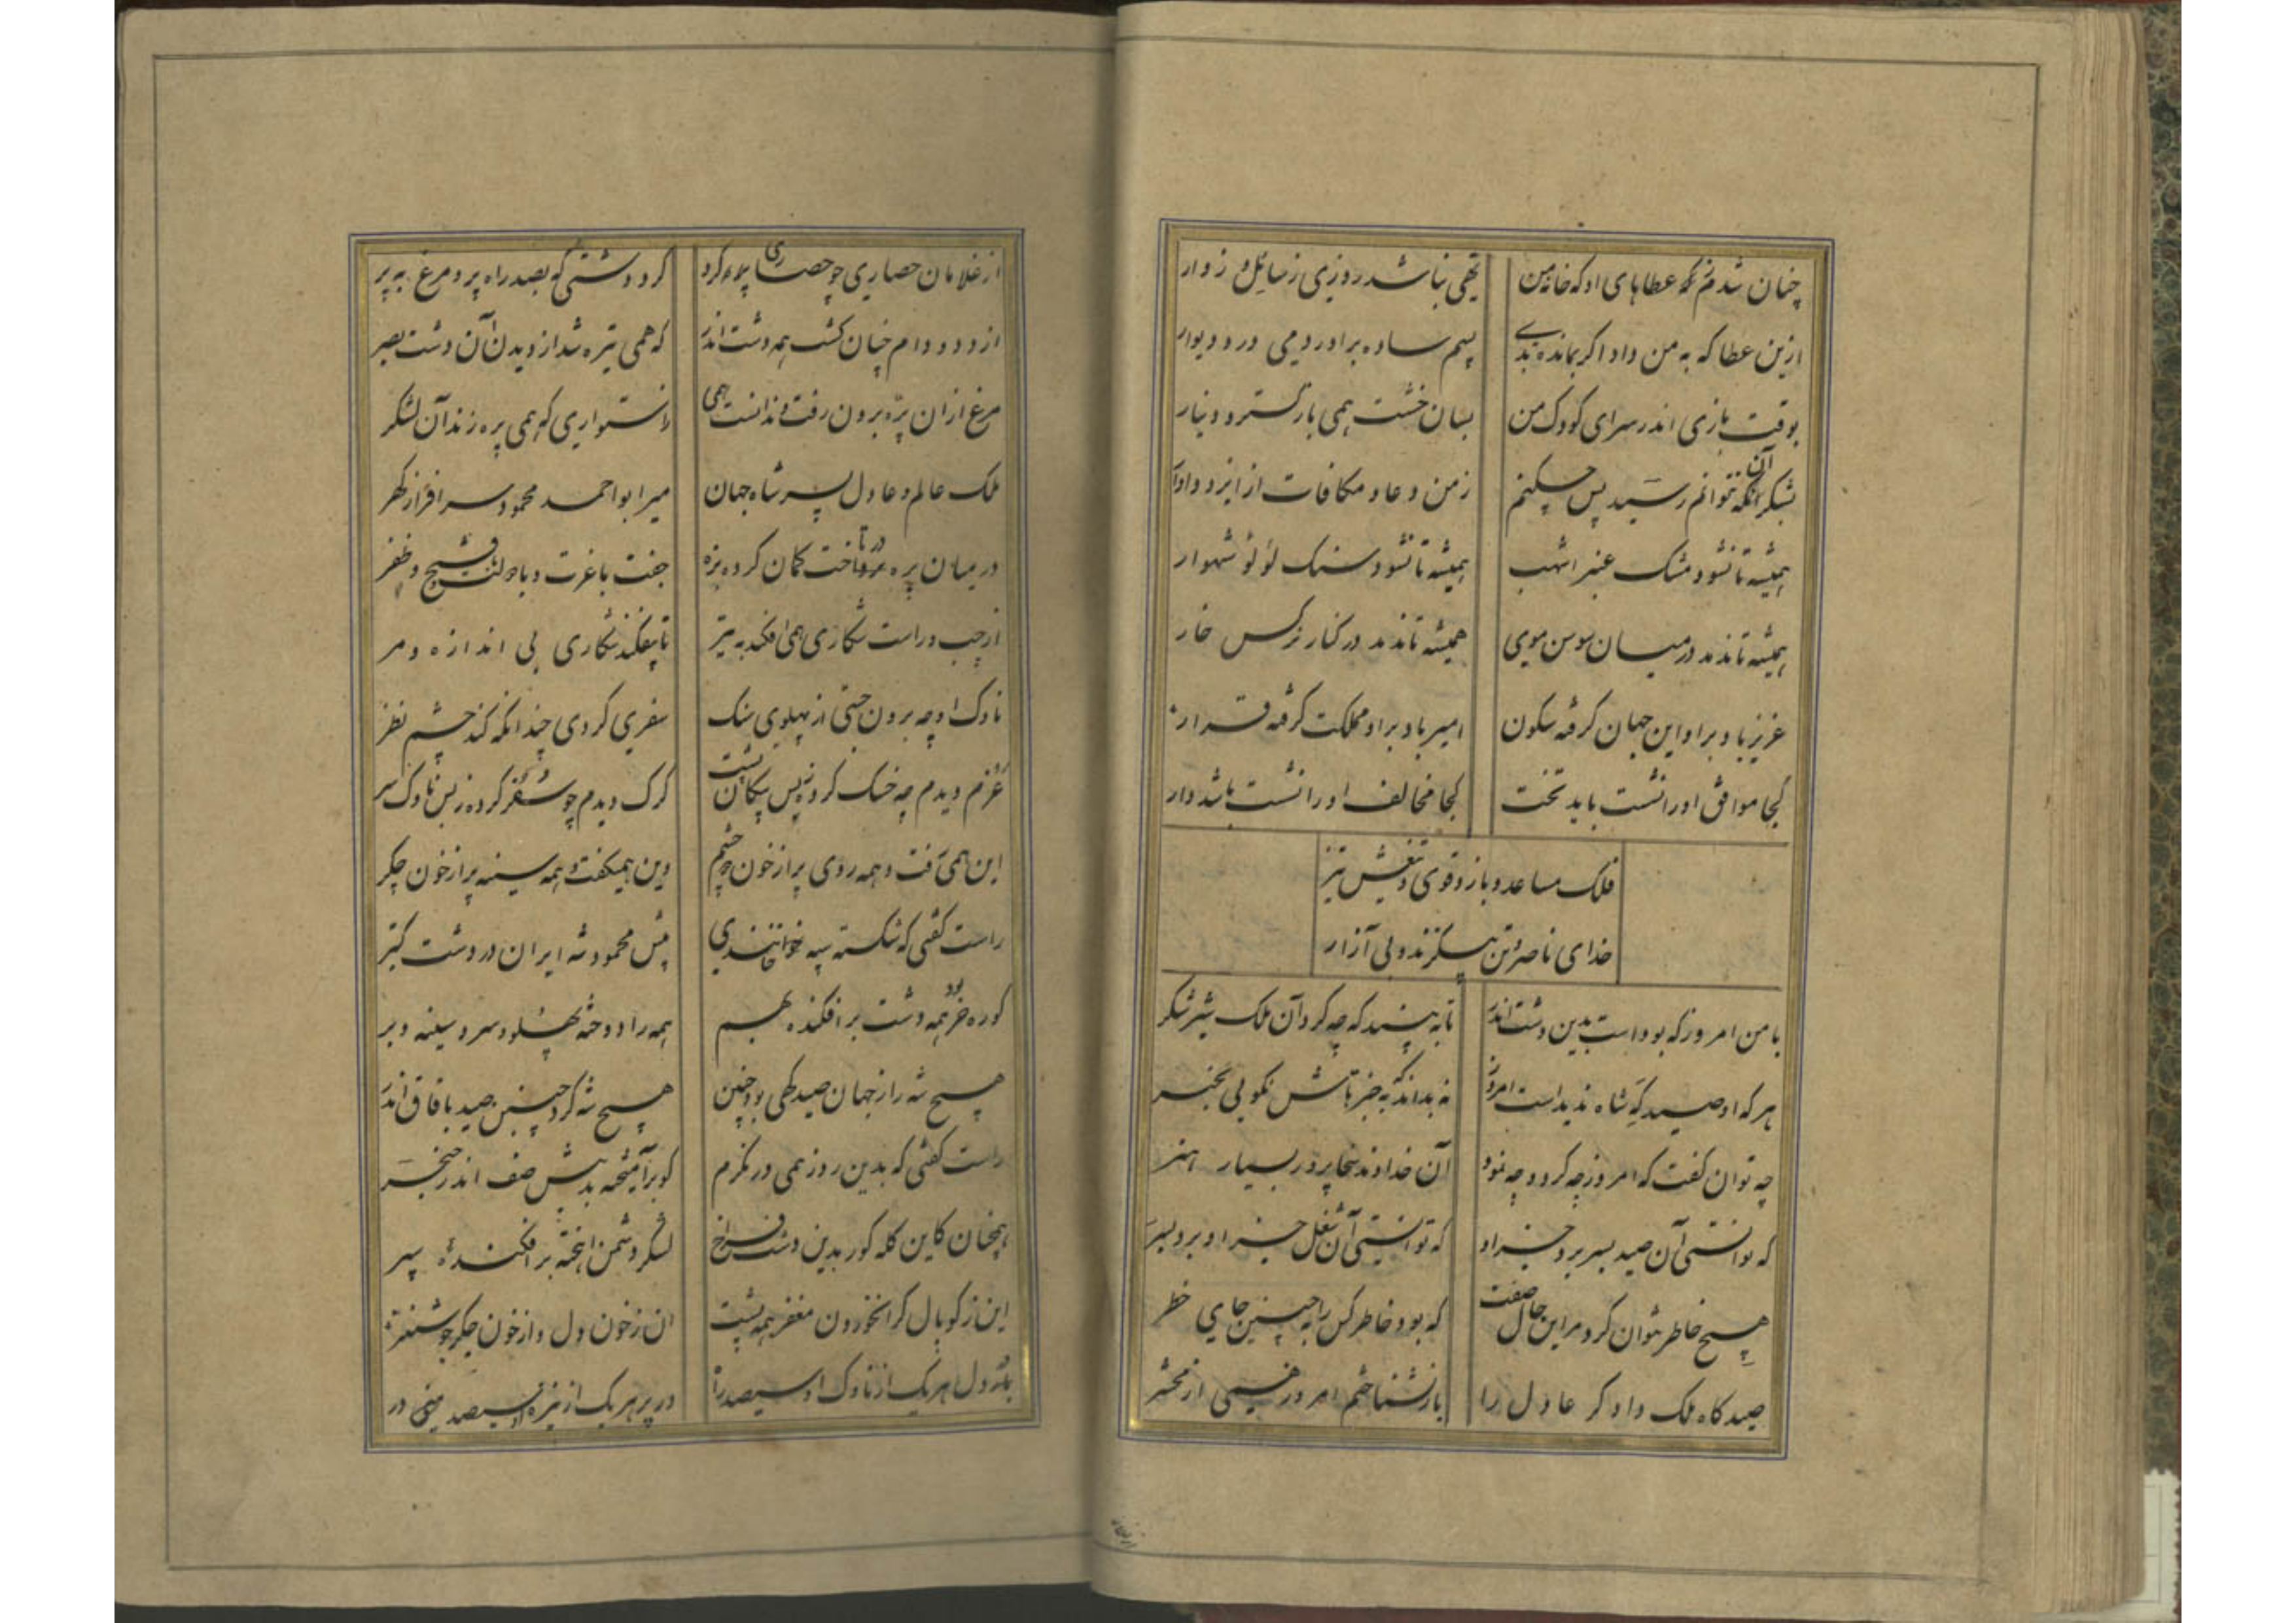 چنان شدم که عطاهای او که خانه من
تهی نباشد روزی ز سائل و زوار
ازین عطا که به من داد اگر بمانده بدی
بسیم ساده براوردمی در و دیوار
بوقت بازی اندر سرای کودک من
بسان خشت همی بازگسترد دینار
بشکر آنکه نتوانم رسید پس چکنم
ز من دعا و مکافات از ایزد دادار
همیشه تا نشود مشک عنبر اشهب
همیشه تا نشود سنک لؤلؤ شهوار
همیشه تا ندمد در میان سوسن موی
همیشه تا ندمد در کنار نرکس خار
عزیز باد و براو این جهان کرفته سکون
امیر باد و براو مملکت کرفته قرار
کجا موافق او را نشست باید تخت
کجا مخالف او را نشست باشد دار
فلک مساعد و بازو قوی و تیغش تیز
خدای ناصر و تن بی کزند و بی آزار
با من امروز که بوداست بدین دشت اندر
تا به بیند که چه کرد آن ملک شیر شکر
هرکه او صید که شاه ندیداست امروز
نه بداند که به جز تاش نکویی بخبر
چه توان کفت که امروز چه کرد و چه نمود
آن خداوند سخاپرور بسیار هنر
که توانستی آن صید بسر برد جز او
که توانستی آن شغل جز او برد بسر
هیچ خاطر نتوان کرد مر این حال صفت
که بود خاطر کس را به چنین جای خطر
صیدکاه ملک دادکر عادل را
باز نشناختم امروز همی از محشر
از غلامان حصاری چو حصاری پره کرد
کرد دشتی که بصد راه پرد مرغ به پر
از دد و دام چنان کشت همه دشت اندر
که همی تیره شد از دیدن آن دشت بصر
مرغ ازان پره برون رفت ندانست همی
ز استواری که همی پره زند آن لشکر
ملک عالم و عادل پسر شاه جهان
میر ابواحمد محمود سرافراز کهر
در میان پره در تاخت کمان کرده بزه
جفت با عزت و با دولت و فتح و ظفر
از چپ و راست شکاری همی افکند به تیر
تا بیفکند شکاری بی اندازه و مر
ناوک او چه برون جستی از پهلوی سنک
سفری کردی چندانکه کند چشم نظر
غرم دیدم چه خسک کرده ز بس پیکان پشت
کرک دیدم چو شغر کرده ز بس ناوک سر
این همی رفت و همه روی پر از خون چشم
وین همیکفت و همه سینه پر از خون جکر
راست کفتی که شکسته سپه خوانندی
پیش محمود شه ایران در دشت کتر
کوره خر بود همه دشت برافکنده بهم
همه را دوخته پهلو و سر و سینه و بر
هیچ شه را ز جهان صید کهی بود چنین
هیچ شه کرد چنین صید بافاق اندر
راست کفتی که بدین روز همی درنکرم
کو برآمیخته بد پیش صف اندر خنجر
همچنان کاین کله کور بدین دشت فراخ
لشکر دشمن انخته برافکنده سپر
این ز کوپال کران خوردن مغفر همه پشت
ان ز خون دل و از خون جکر چو شنغر
بر دل هر یک از ناوک او سیصد راه
در بر هر یک از نیزه او سیصد در